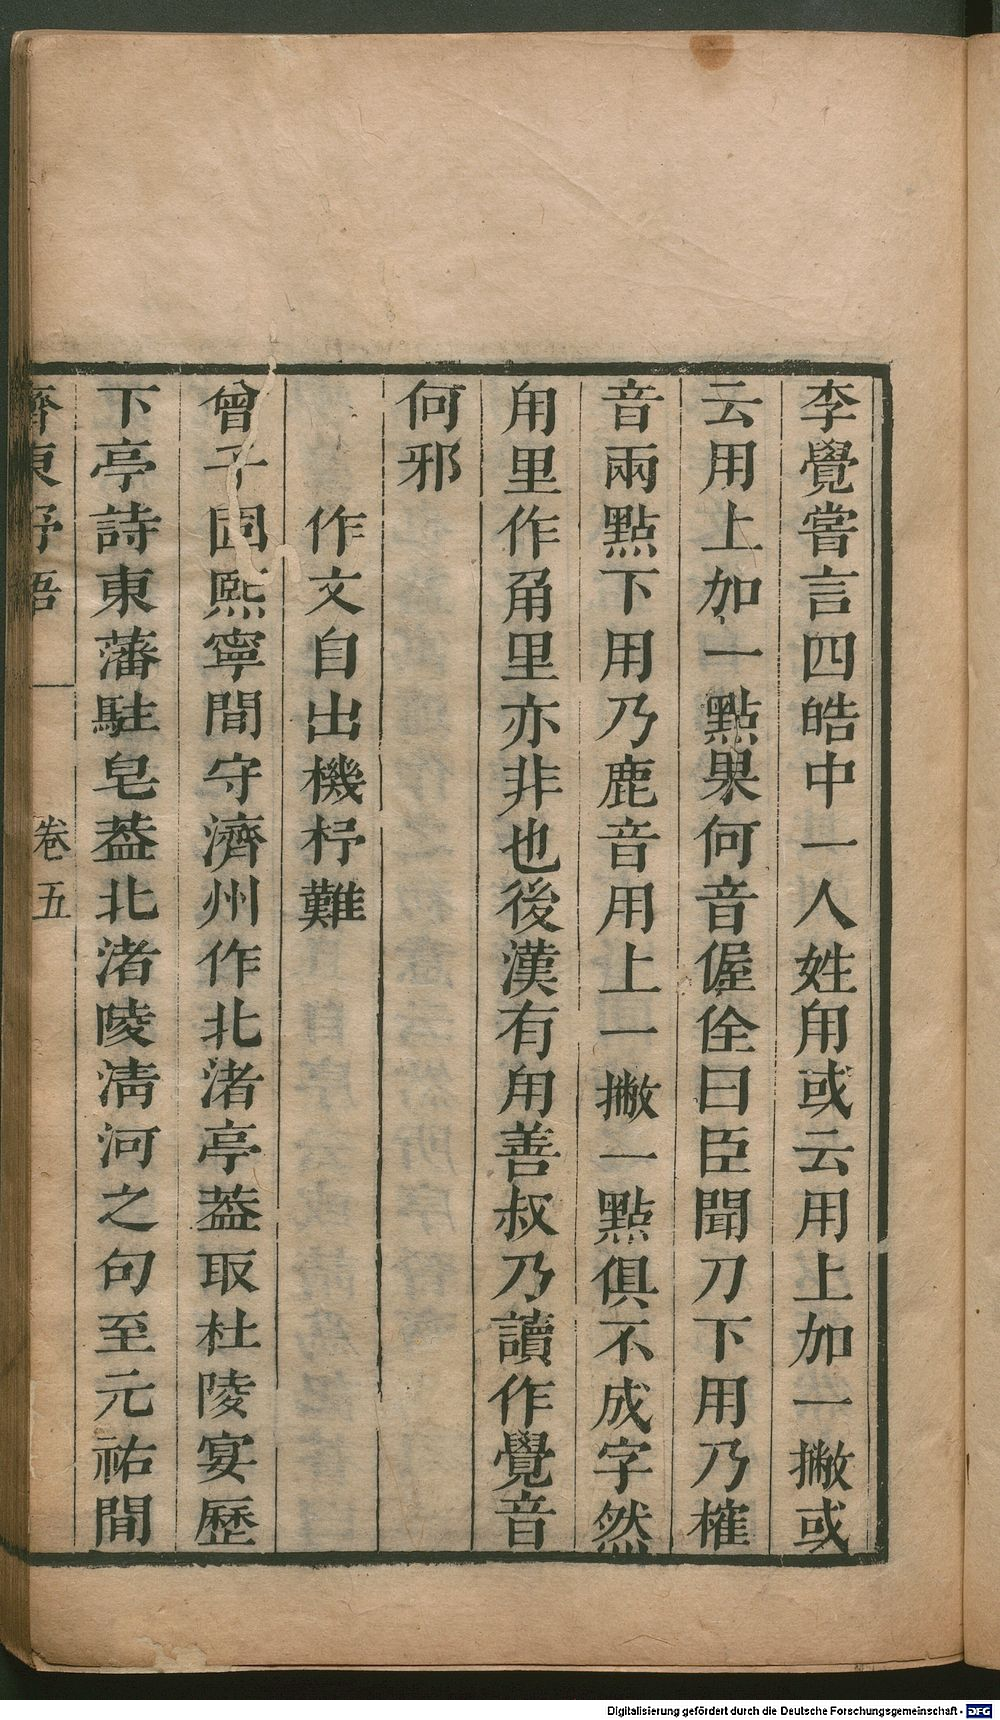 李覺嘗言四皓中一人姓用或云用上加一撇或
云用上加一點果何音偓佺曰臣聞刀下用乃榷
音兩點下用乃鹿音用上一撇一點俱不成字然
甪里作角里亦非也後漢有甪善叔乃讀作覺音
何邪
作文自出機杼難
曾子固熙寧間守濟州作北渚亭葢取杜陵宴歷
下亭詩東藩駐皂葢北渚陵淸河之句至元祐間
齊東野語
卷五
Digitalisierung gefördert durch die Deutsche Forschungsgemeinschaft - DFG